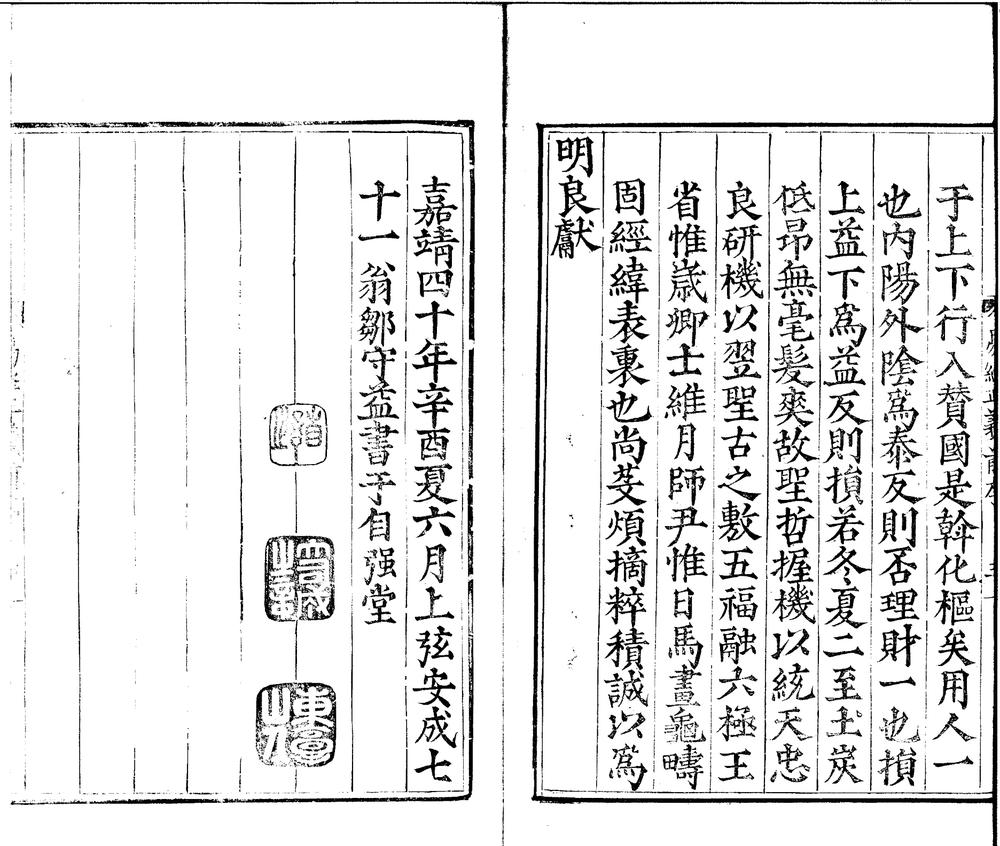 于上下行入賛國是斡化樞矣用人一
也内陽外陰爲泰反則否理財一也損
上益下爲益反則損若冬夏二至土炭
低昂無毫髮爽故聖哲握機以統天忠
良研機以翌聖古之敷五福融六極王
省惟歳卿士維月師尹惟日馬畫龜疇
固經緯表裏也尚芟煩摘粹積誠以爲
明良獻
嘉靖四十年辛酉夏六月上弦安成七
十一翁鄒守益書于自强堂